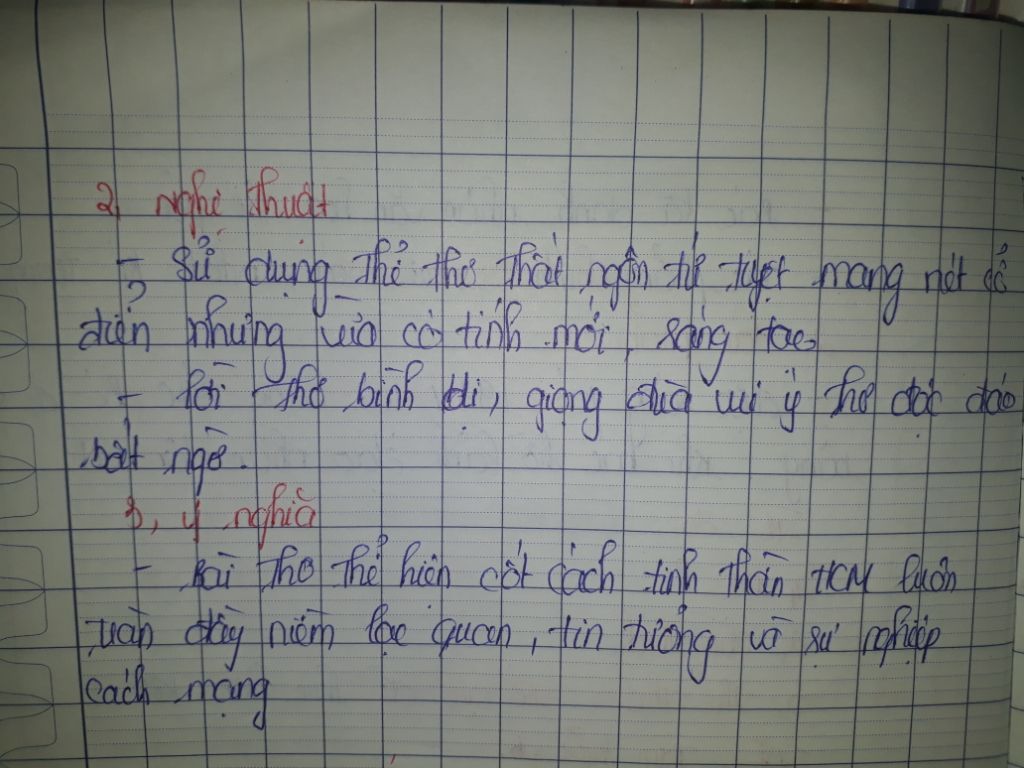 2, nghệ thuật
- Sử dụng thể thơ thất ngôn tứ tuyệt mang nét cổ
điển nhưng vừa có tính mới, sáng tạo
- lời thơ bình dị, giọng đùa vui ý thơ độc đáo
bất ngờ.
3, ý nghĩa
- Bài thơ thể hiện cốt cách tinh thần HCM luôn
tràn đầy niềm lạc quan, tin tưởng về sự nghiệp
cách mạng